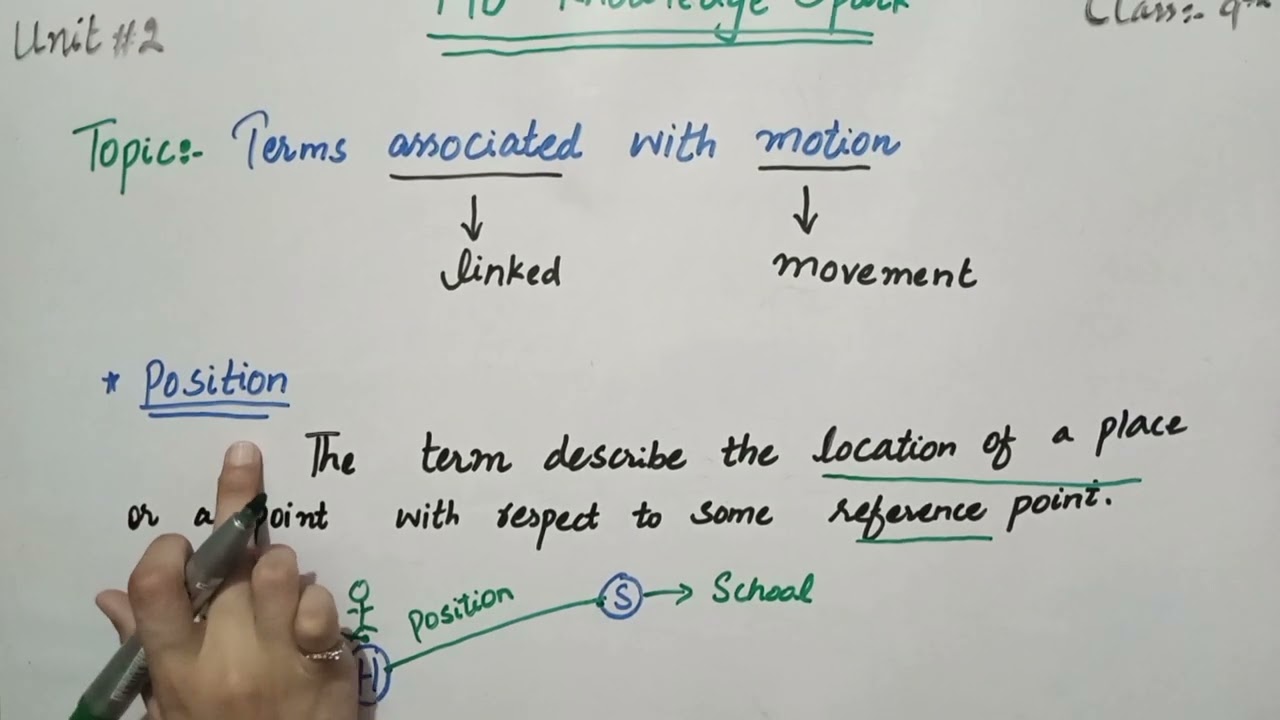 Unit #2
Knowledge Spark
Class:- 9th
Topic:- Terms associated with motion
linked
movement
* Position
The term describe the location of a place
or a point with respect to some reference point.
Position
S
School
H